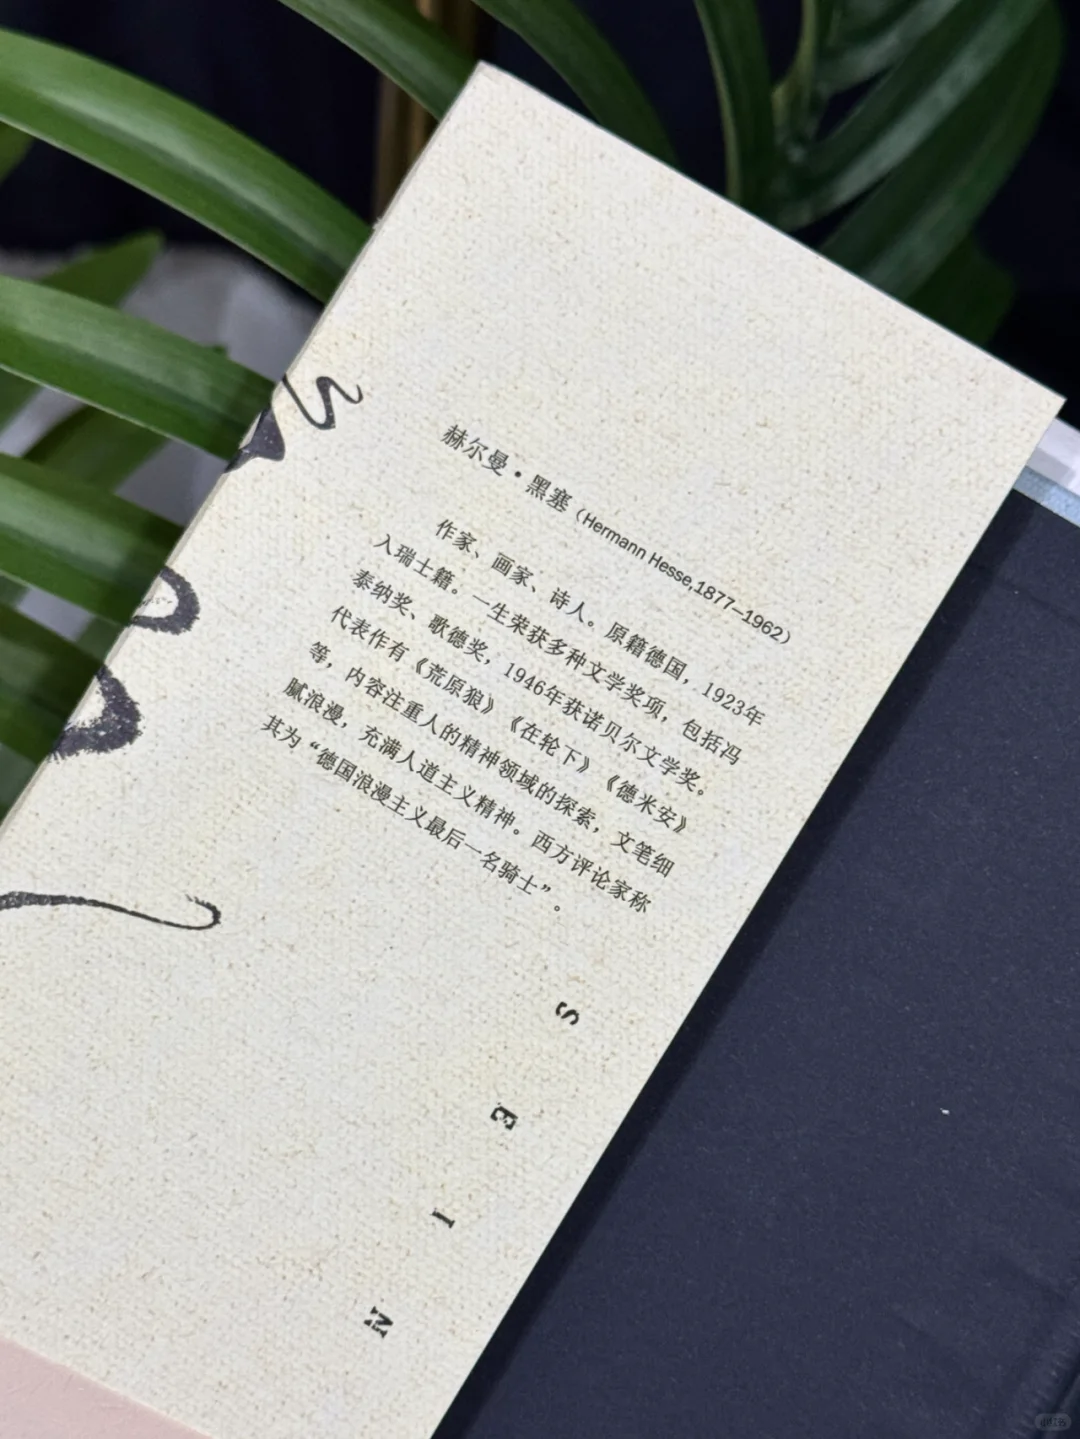 赫尔曼·黑塞（Hermann Hesse,1877—1962）
作家、画家、诗人。原籍德国，1923年
入瑞士籍。一生荣获多种文学奖项，包括冯
泰纳奖、歌德奖，1946年获诺贝尔文学奖。
代表作有《荒原狼》《在轮下》《德米安》
等，内容注重人的精神领域的探索，文笔细
腻浪漫，充满人道主义精神。西方评论家称
其为“德国浪漫主义最后一名骑士”。
S
E
I
N